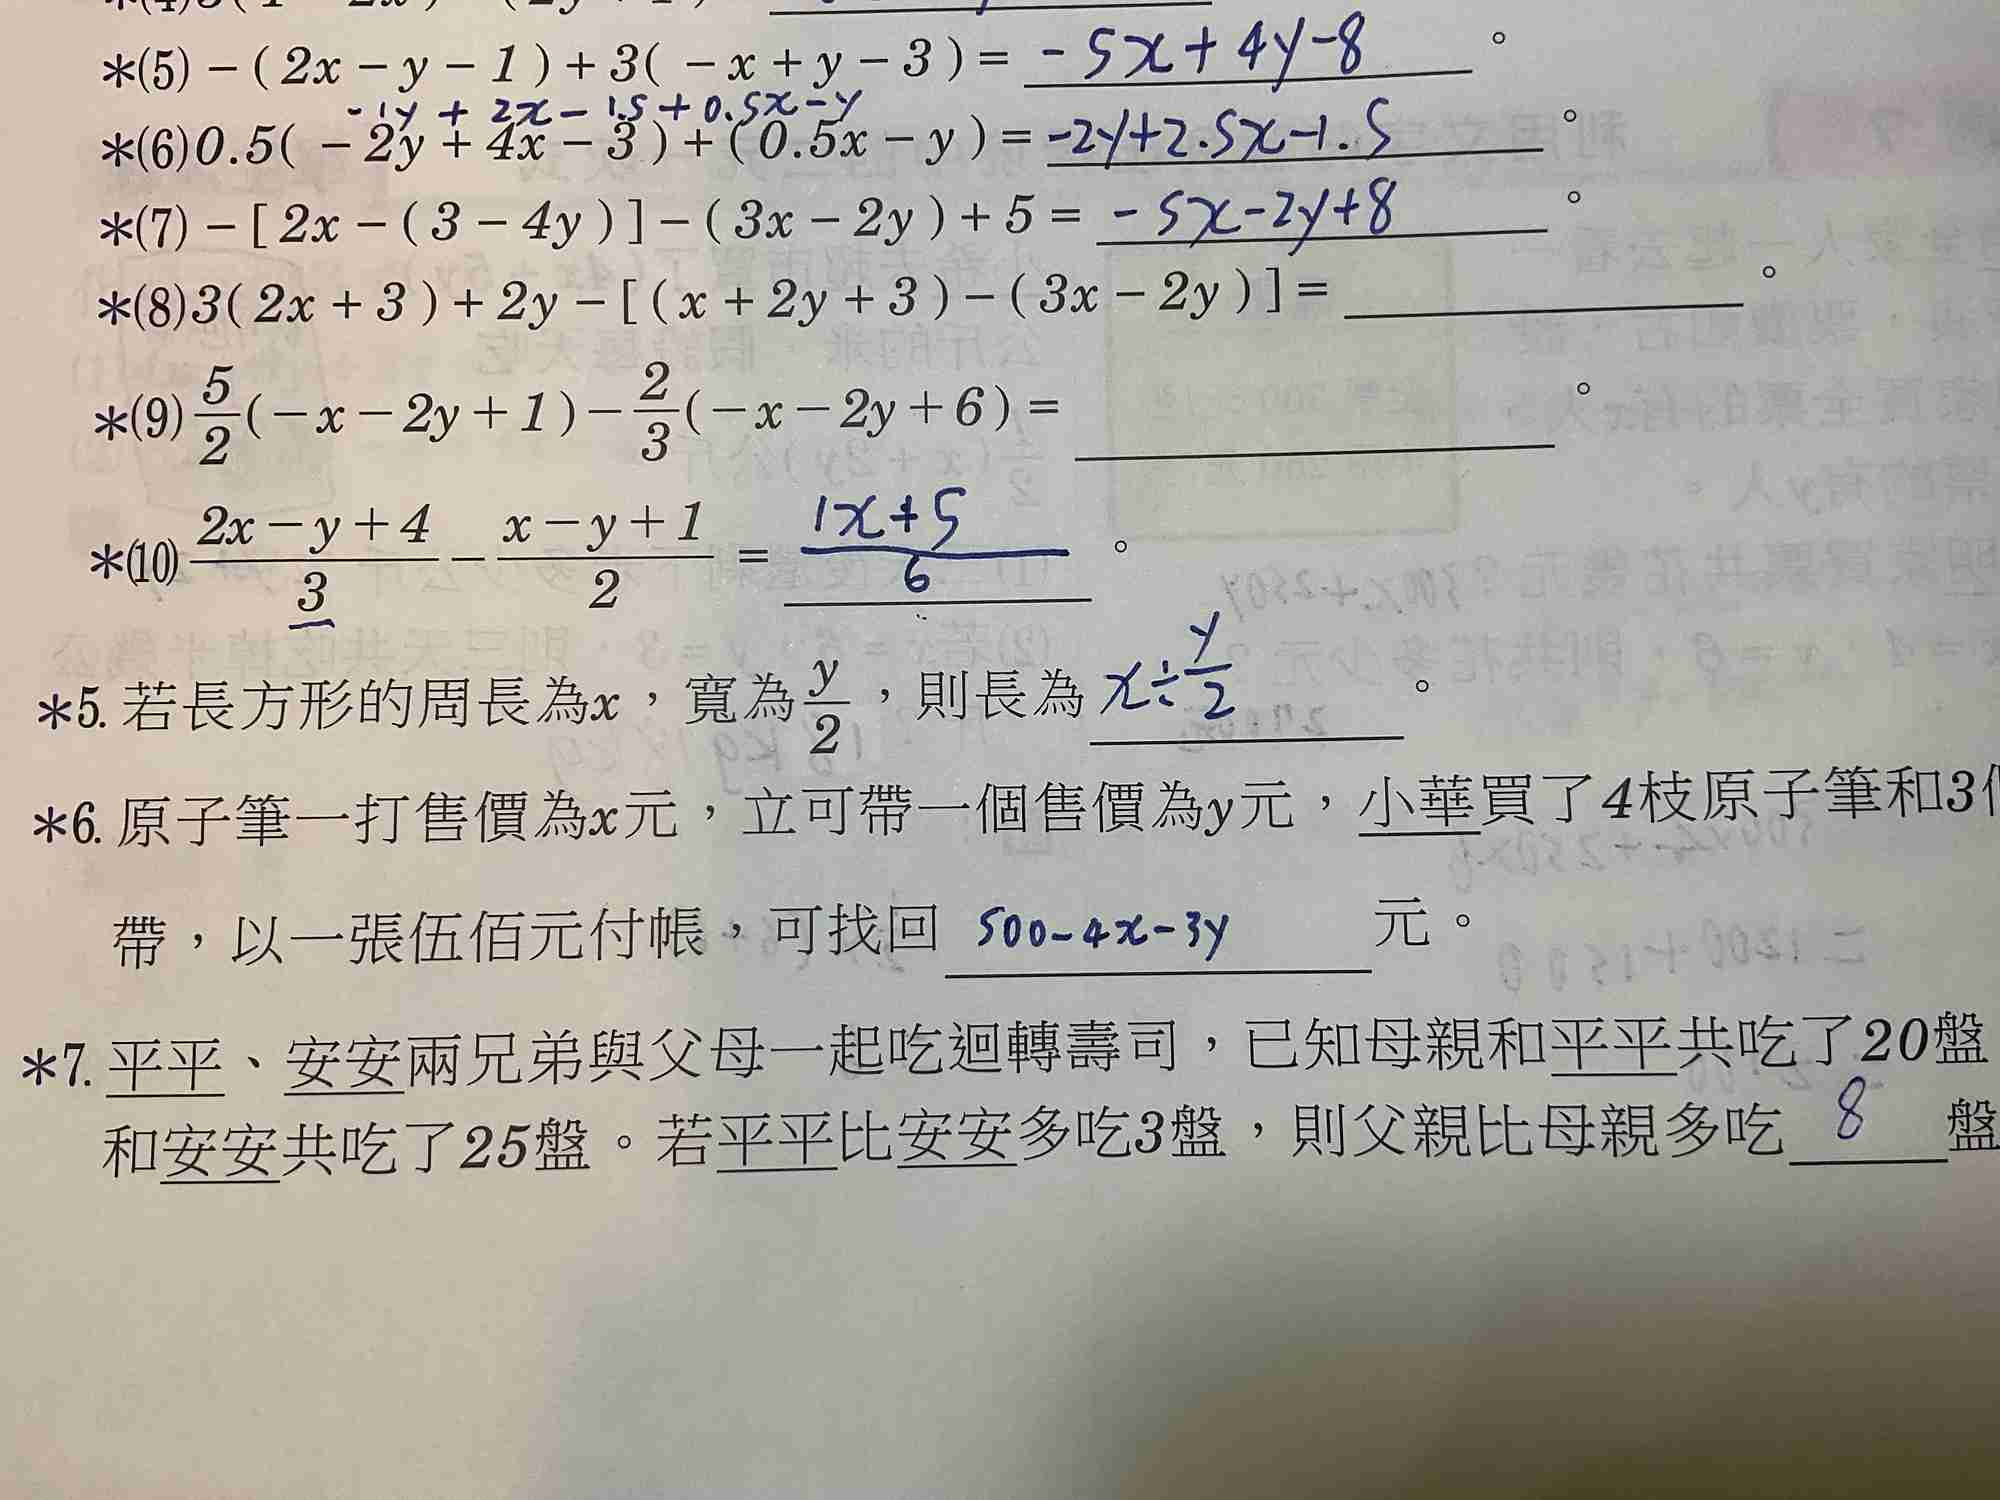 *(5) －( 2x－y－1 )＋3( －x＋y－3 )＝ -5x+4y-8 。
-1y + 2x - 1.5 + 0.5x - y
*(6) 0.5( －2y＋4x－3 )＋( 0.5x－y )＝ -2y+2.5x-1.5 。
*(7) －[ 2x－( 3－4y ) ]－( 3x－2y )＋5＝ -5x-2y+8 。
*(8) 3( 2x＋3 )＋2y－[ ( x＋2y＋3 )－( 3x－2y ) ]＝ 。
*(9) 5/2 (－x－2y＋1 )－2/3 (－x－2y＋6 )＝ 。
*(10) (2x－y＋4)/3 － (x－y＋1)/2 ＝ (1x+5)/6 。
*5. 若長方形的周長為x，寬為y/2，則長為 x÷y/2 。
*6. 原子筆一打售價為x元，立可帶一個售價為y元，小華買了4枝原子筆和3
帶，以一張伍佰元付帳，可找回 500-4x-3y 元。
*7. 平平、安安兩兄弟與父母一起吃迴轉壽司，已知母親和平平共吃了20盤
和安安共吃了25盤。若平平比安安多吃3盤，則父親比母親多吃 8 盤